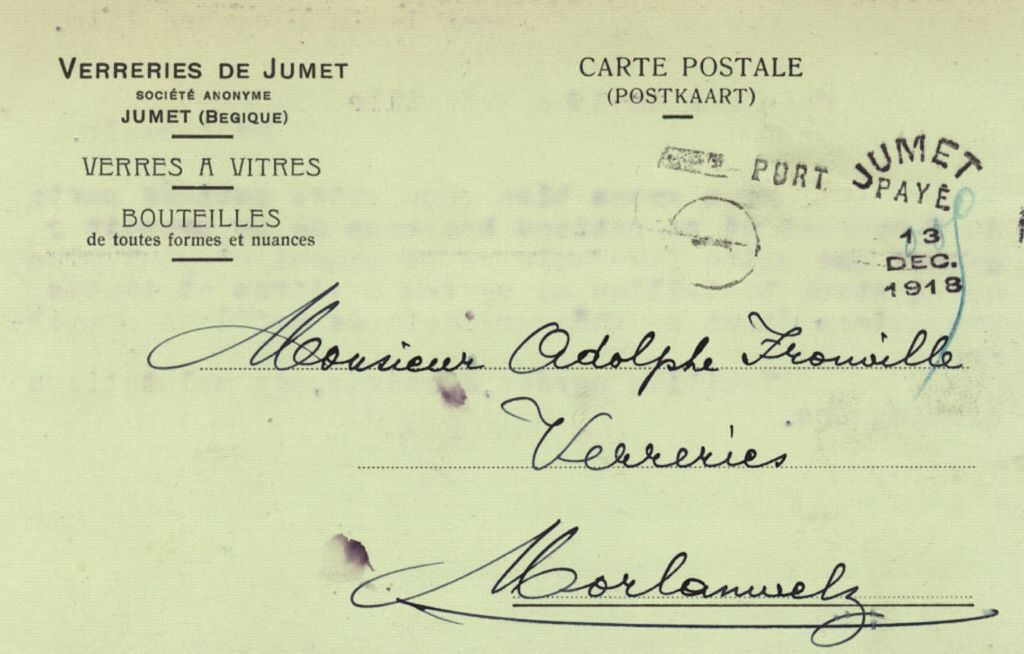 VERRERIES DE JUMET
SOCIÉTÉ ANONYME
JUMET (BEGIQUE)
VERRES A VITRES
BOUTEILLES
de toutes formes et nuances
CARTE POSTALE
(POSTKAART)
PORT
JUMET
PAYÉ
13
DEC.
1918
Monsieur Adolphe Fronville
Verreries
Morlanwelz